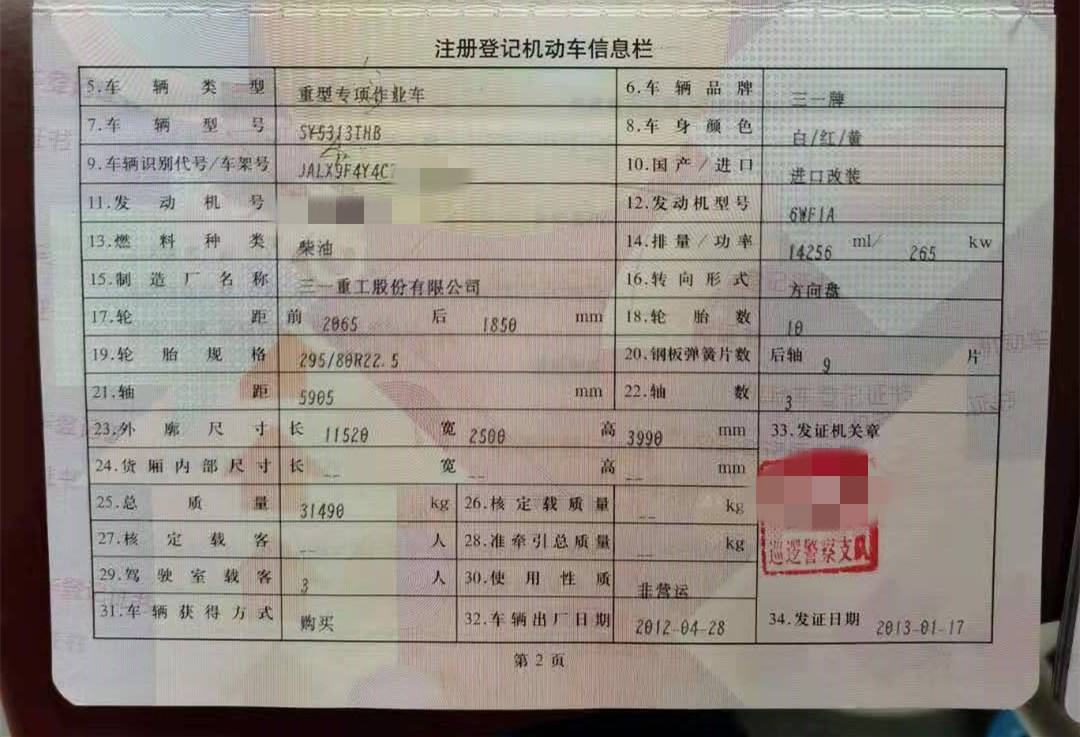 注册登记机动车信息栏
5.车辆类型 重型专项作业车 6.车辆品牌 三一牌
7.车辆型号 SY5313THB 8.车身颜色 白/红/黄
9.车辆识别代号/车架号 JALX9F4Y4C7 10.国产/进口 进口改装
11.发动机号 12.发动机型号 6WF1A
13.燃料种类 柴油 14.排量/功率 14256 ml/ 265 kw
15.制造厂名称 三一重工股份有限公司 16.转向形式 方向盘
17.轮距 前 2065 后 1850 mm 18.轮胎数 10
19.轮胎规格 295/80R22.5 20.钢板弹簧片数 后轴 9 片
21.轴距 5905 mm 22.轴数 3
23.外廓尺寸 长 11520 宽 2500 高 3990 mm 33.发证机关章
24.货厢内部尺寸 长 -- 宽 -- 高 -- mm
25.总质量 31490 kg 26.核定载质量 -- kg
27.核定载客 -- 人 28.准牵引总质量 -- kg
巡逻警察支队
29.驾驶室载客 3 人 30.使用性质 非营运
31.车辆获得方式 购买 32.车辆出厂日期 2012-04-28 34.发证日期 2013-01-17
第2页